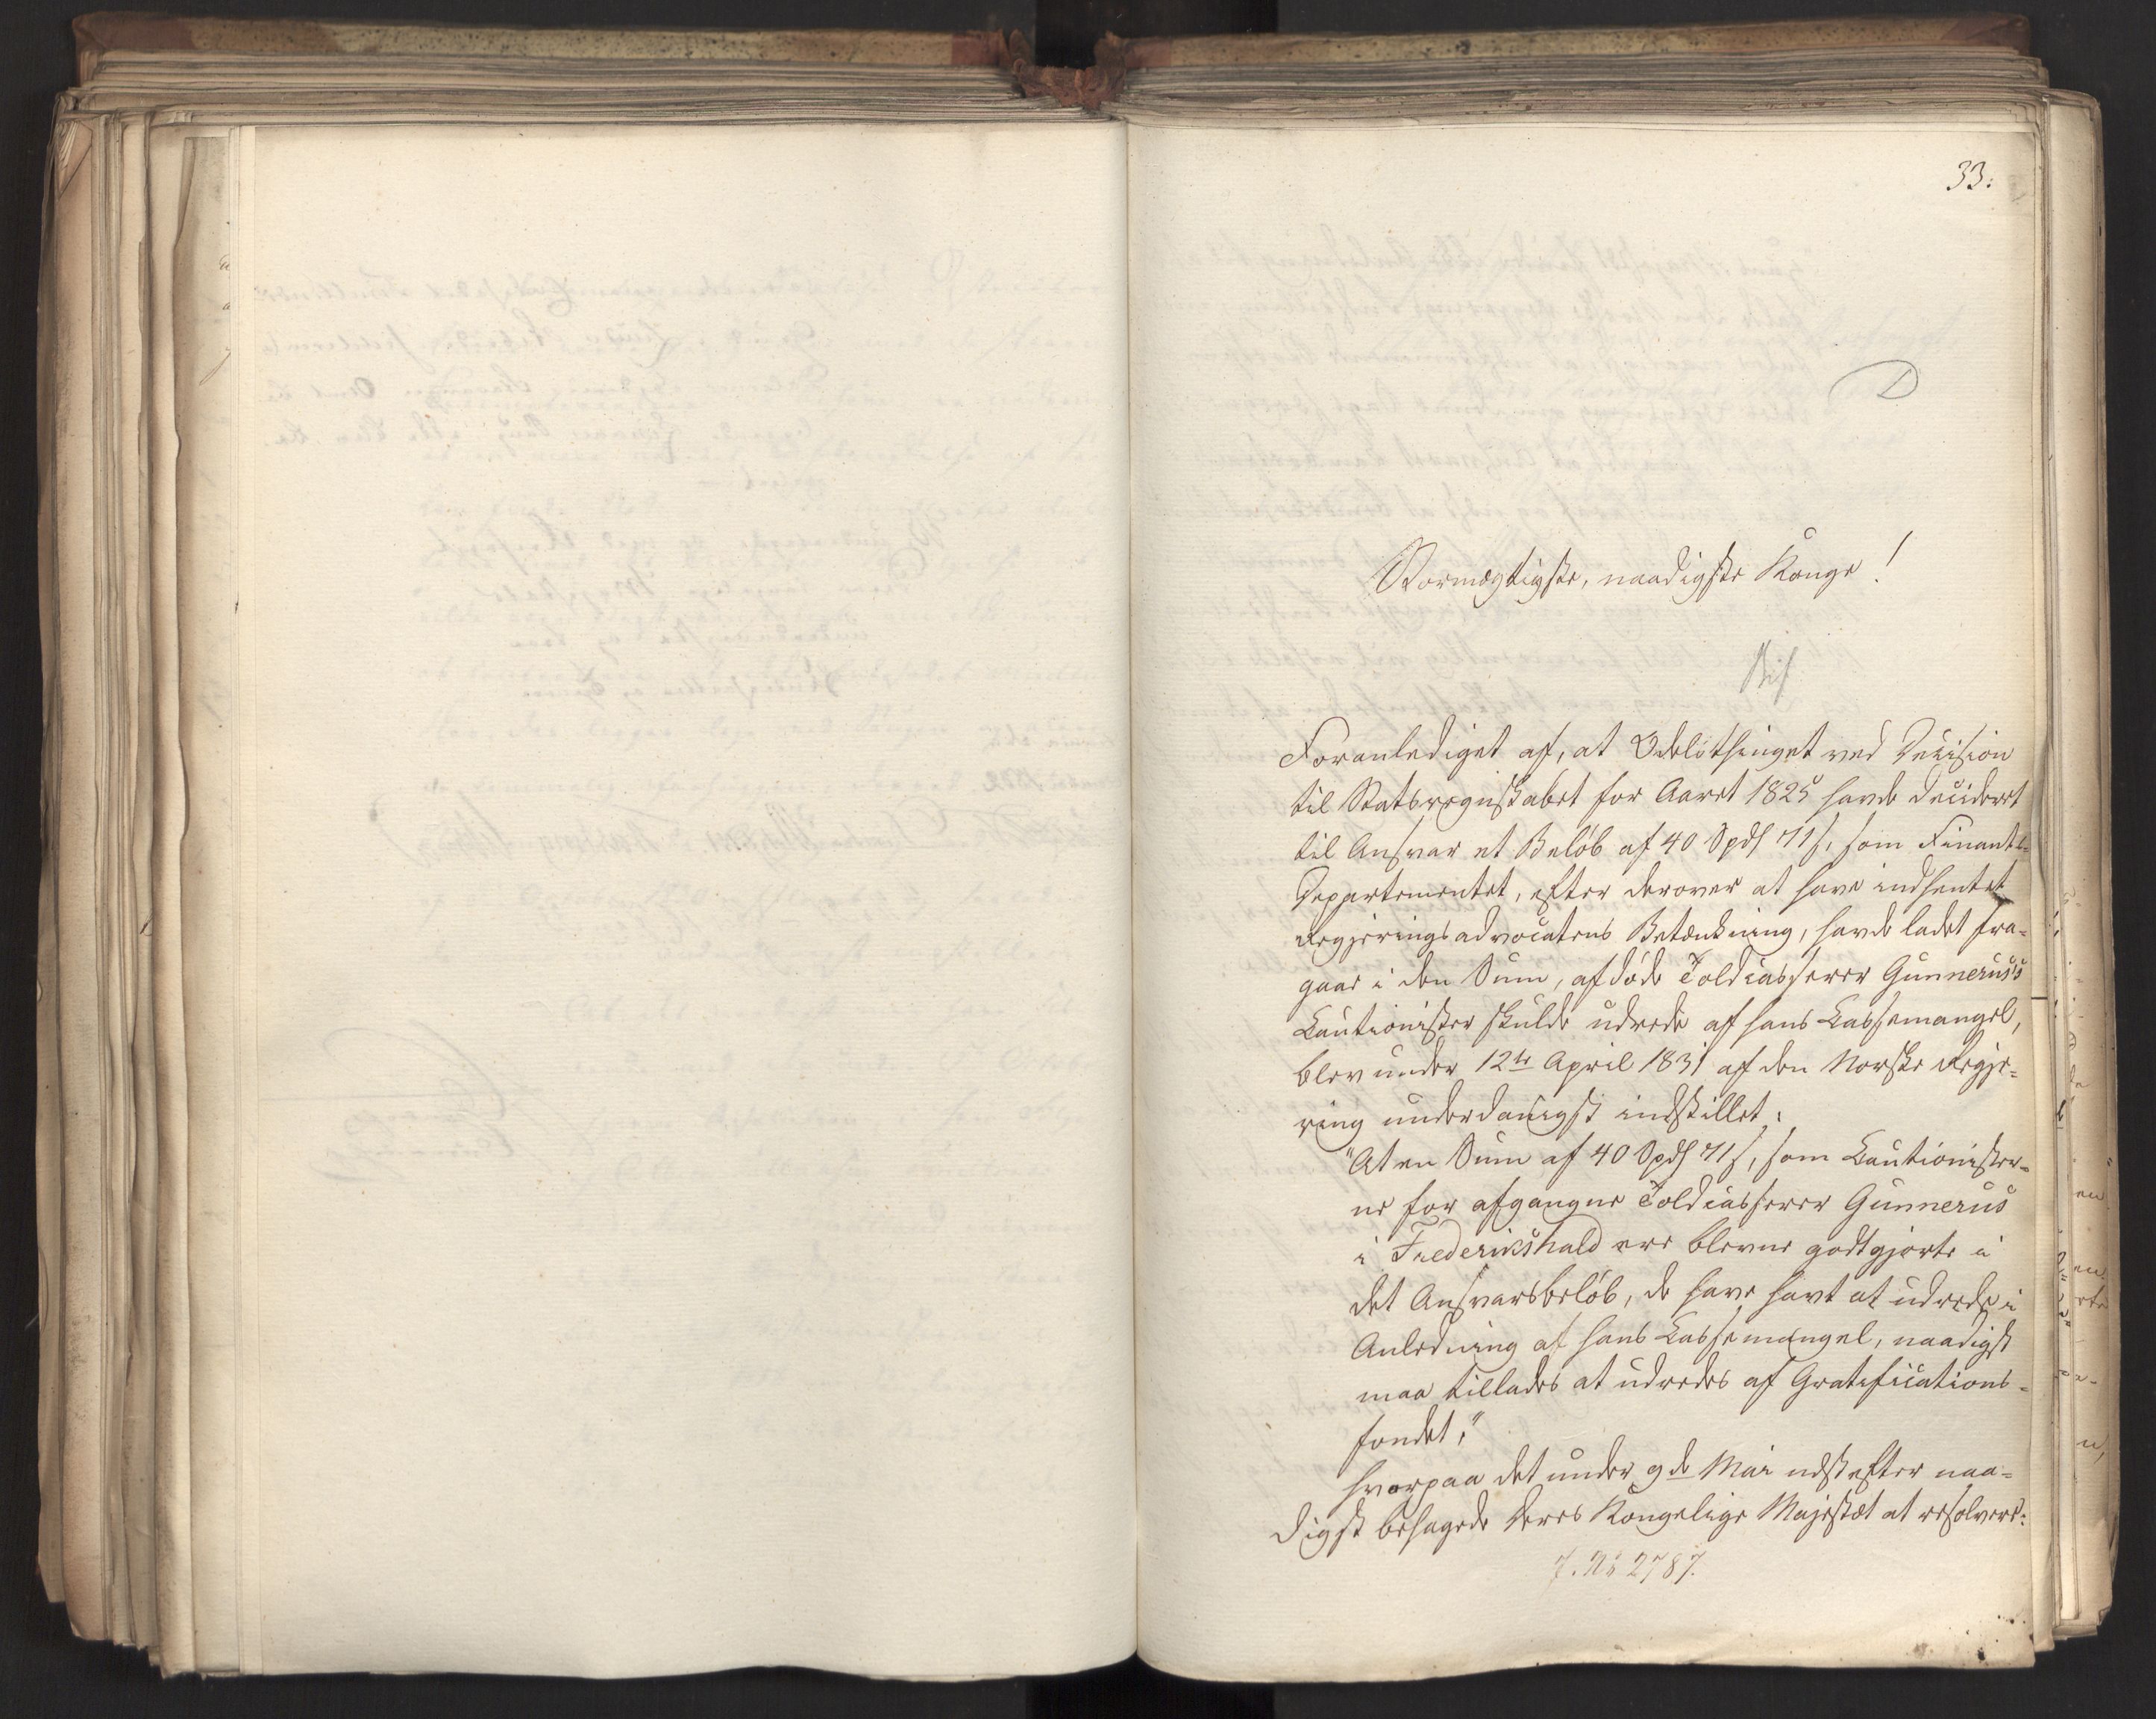 33.
D
Stormægtigste, naadigste Konge!
Foranlediget af, at Odelsthinget ved Decision
til Statsregnskabet for Aaret 1825 havde decideret
til Ansvar et Beløb af 40 Spd 71 s, som Finants-
Departementet, efter derover at have indhentet
Regjeringsadvocatens Betænkning, havde ladet fra-
gaae i den Sum, afdøde Toldcasserer Gunnerus's
Cautionister skulde udrede af hans Cassemangel,
blev under 12te April 1831 af den Norske Regje-
ring underdanigst indstillet:
"At en Sum af 40 Spd 71 s, som Cautionister-
ne for afgangne Toldcasserer Gunnerus
i Frederikshald ere blevne godtgjorte i
det Ansvarsbeløb, de have havt at udrede i
Anledning af hans Cassemangel, naadigst
maa tillades at udredes af Gratifications-
fondet,"
hvorpaa det under 9de Mai næstefter naa-
digst behagede Deres Kongelige Majestæt at resolvere:
J. No 2787.